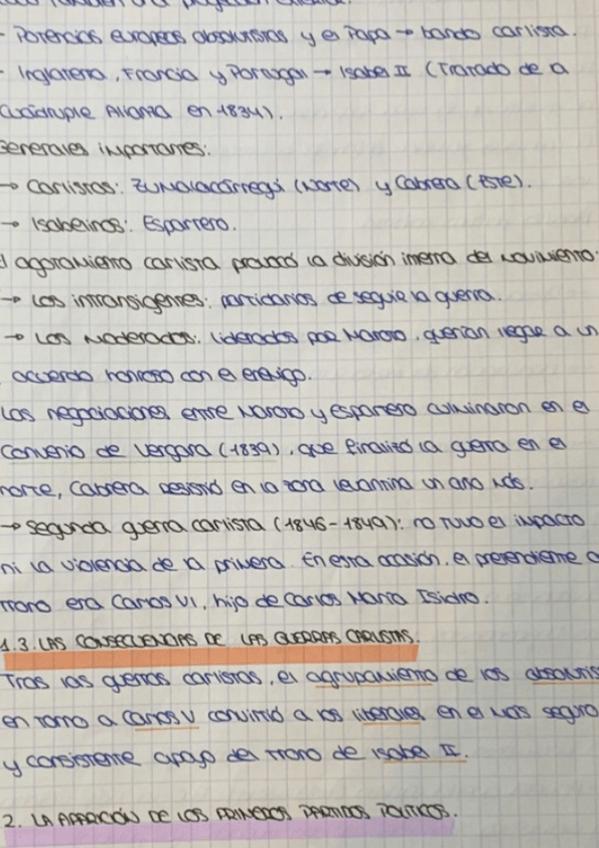 también una proyección exterior.
- Potencias europeas absolutistas y el Papa → bando carlista.
- Inglaterra, Francia y Portugal → Isabel II (Tratado de a
Cuádruple Alianza en 1834).
Generales importantes:
→ Carlistas: Zumalacárregui (Norte) y Cabrera (Este).
→ Isabelinos: Espartero.
l agotamiento carlista provocó la división interna del movimiento:
→ Los intransigentes: partidarios de seguir la guerra.
→ Los Moderados: liderados por Maroto, querían llegar a un
acuerdo honroso con el enemigo.
Las negociaciones entre Maroto y Espartero culminaron en el
Convenio de Vergara (1839), que finalizó la guerra en el
norte, Cabrera resistió en la zona levantina un año más.
→ Segunda guerra carlista (1846-1849): no tuvo el impacto
ni la violencia de la primera. En esta ocasión, el pretendiente a
trono era Carlos VI, hijo de Carlos María Isidro.
1.3. LAS CONSECUENCIAS DE LAS GUERRAS CARLISTAS.
Tras las guerras carlistas, el agrupamiento de los absolutis
en torno a Carlos V convirtió a los liberales en el más seguro
y consistente apoyo del trono de Isabel II.
2. LA APARICIÓN DE LOS PRIMEROS PARTIDOS POLÍTICOS.